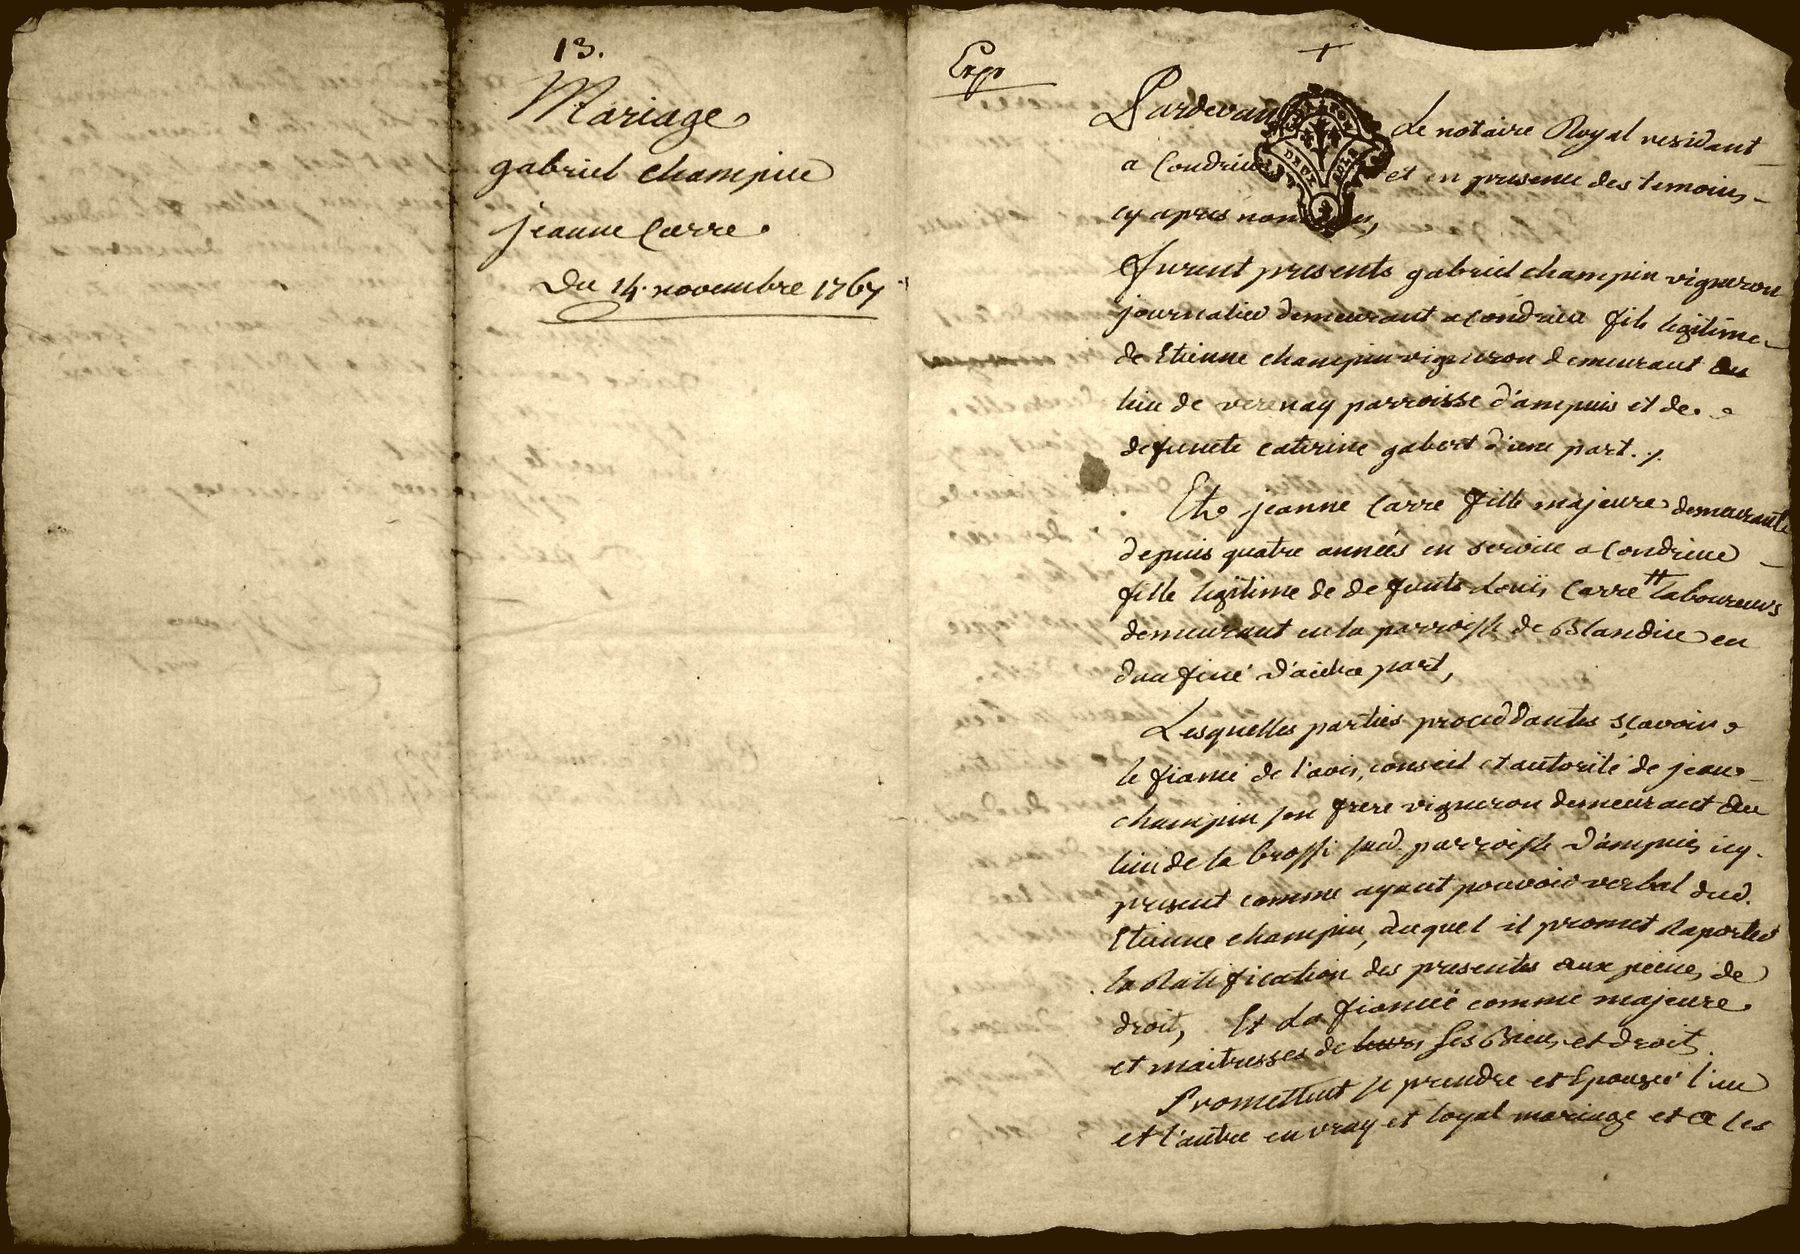 13.
Mariage
gabriel champin
jeanne Carre
Du 14. novembre 1767
Exp
+
Pardevant Le notaire Royal residant
a Condrieu et en presence des temoins
cy apres nommes,
DEUX SOLS
furent presents gabriel champin vigneron
journalier demeurant a Condrieu fils legitime
de Etienne champin vigneron demeurant au
lieu de verenay parroisse d'ampuis et de
defuncte caterine gabert d'une part. /.
Et jeanne Carre fille majeure demeurante
depuis quatre années en service a Condrieu
fille legitime de defunts Louis Carre Laboureurs
demeurant en la parroisse de Blandin en
daufiné d'autre part,
Lesquelles parties proceddantes sçavoir
le fiancé de l'avis, conseil et autorité de jean
champin son frere vigneron demeurant au
lieu de la brosse sud. parroisse d'ampuis icy
present comme ayant pouvoir verbal dud.
Etienne champin, duquel il promet Raporter
la Ratification des presentes aux peines de
droit, Et La fiancée comme majeure
et maitresses de leurs ses Biens et droits.
Promettent se prendre et Epouser l'un
et l'autre en vray et loyal mariage et a les